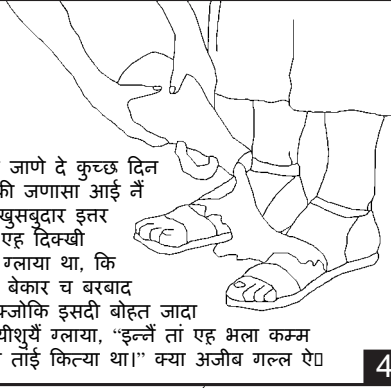 जाणे दे कुच्छ दिन
की जणासा आई नैं
खुसबुदार इत्तर
एह दिक्खी
ग्लाया था, कि
बेकार च बरबाद
क्जोकि इसदी बोहत जादा
यीशुयैं ग्लाया, “इन्नैं तां एह भला कम्म
तांई कित्या था।” क्या अजीब गल्ल ऐ
4